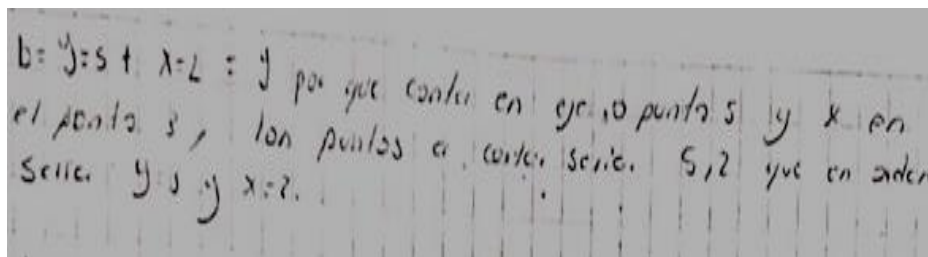 b= y=5 + x=2 = y por que corta en eje, o punto 5 y x en
el punto 3, los puntos a cortar seria. 5,2 que en orden
seria y=5 y x=2.